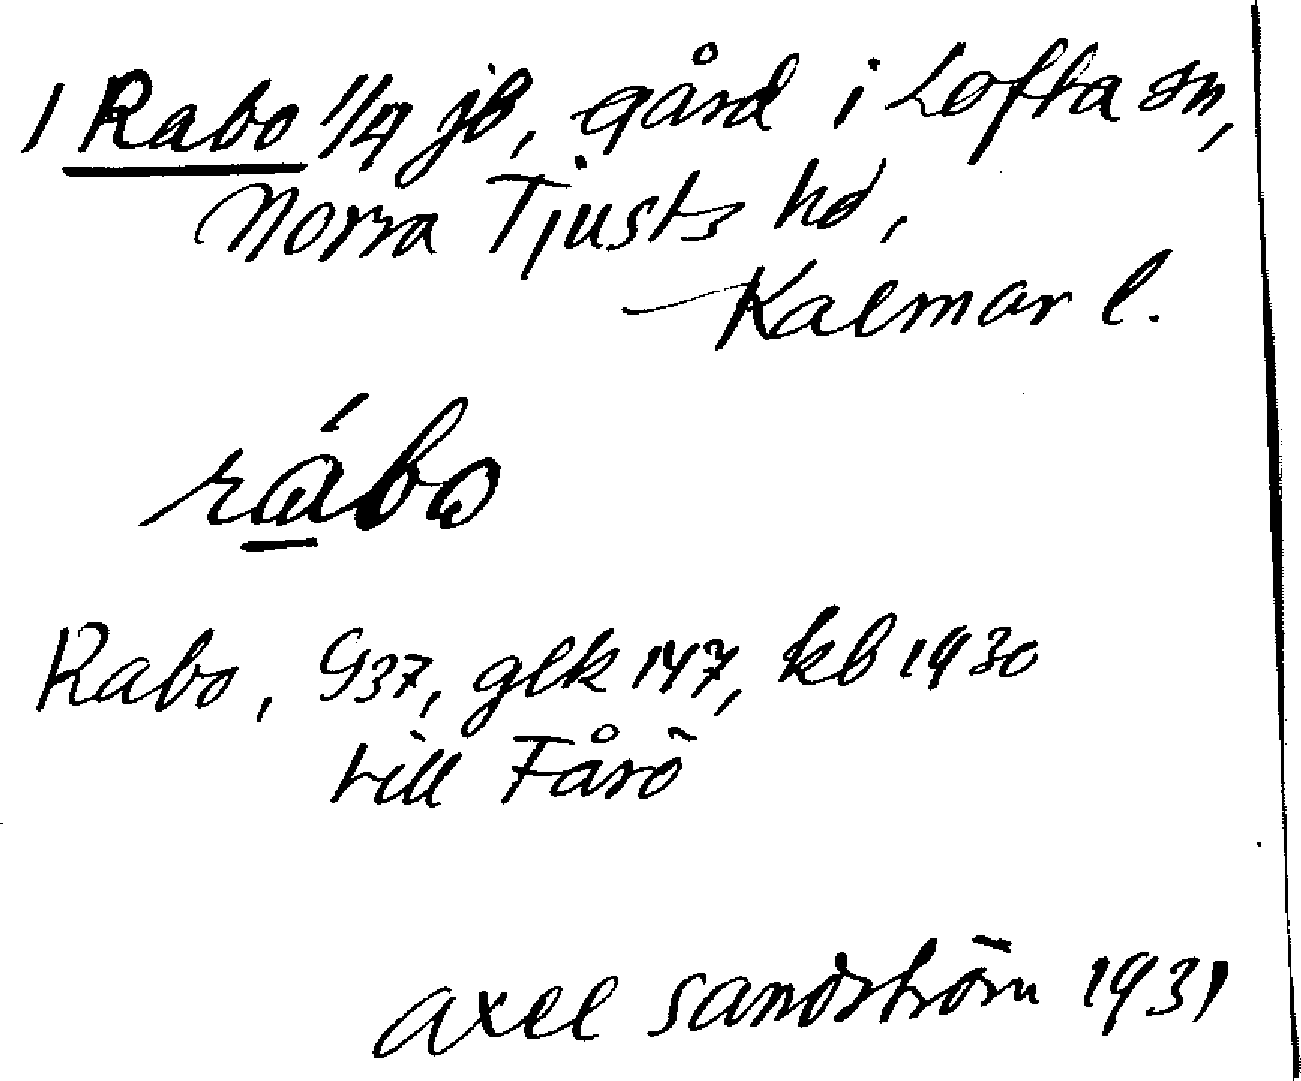 1 Rabo 1/4 jb, gård i Lofta sn,
Norra Tjusts hd,
Kalmar l.
rábo
Rabo, G37, glk 147, kb 1930
till Fårö
Axel Sandström 1931